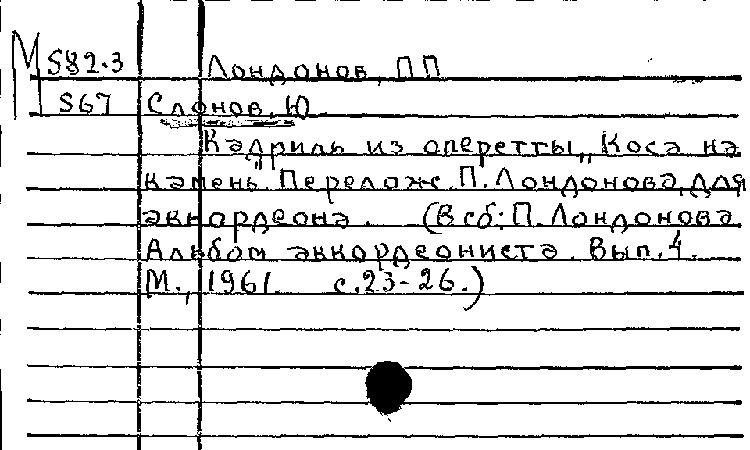 М S82.3 Лондонов, П П
S67 Слонов, Ю
Кадриль из оперетты „Коса на
камень". Перелож. П. Лондонова для
аккордеона. (В сб: П. Лондонова
Альбом аккордеониста. Вып. 4.
М., 1961. с. 23-26.)